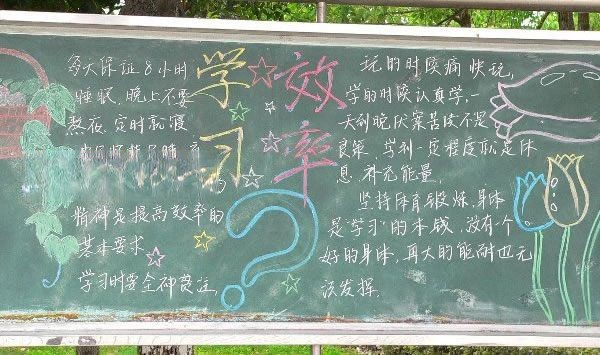 学习
效率
每天保证8小时
睡眠,晚上不要
熬夜,定时就寝
精神是提高效率的
基本要求
学习时要全神贯注
玩的时候痛快玩,
学的时候认真学,一
天到晚伏案苦读不是
良策,学到一定程度就是休
息、补充能量,
坚持体育锻炼,身体
是“学习”的本钱,没有个
好的身体,再大的能耐也无
法发挥.